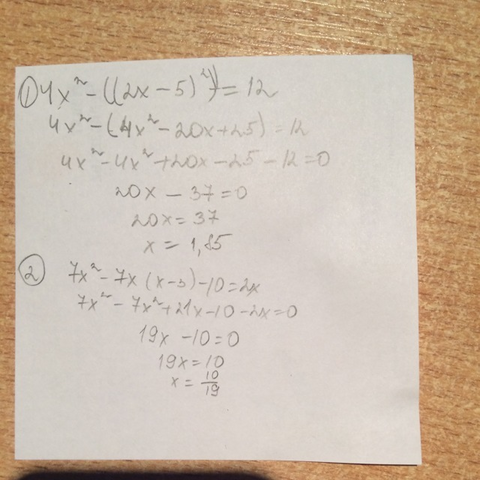 ① 4x² - ((2x - 5)²) = 12
4x² - (4x² - 20x + 25) = 12
4x² - 4x² + 20x - 25 - 12 = 0
20x - 37 = 0
20x = 37
x = 1,85
② 7x² - 7x (x - 3) - 10 = 2x
7x² - 7x² + 21x - 10 - 2x = 0
19x - 10 = 0
19x = 10
x = 10/19